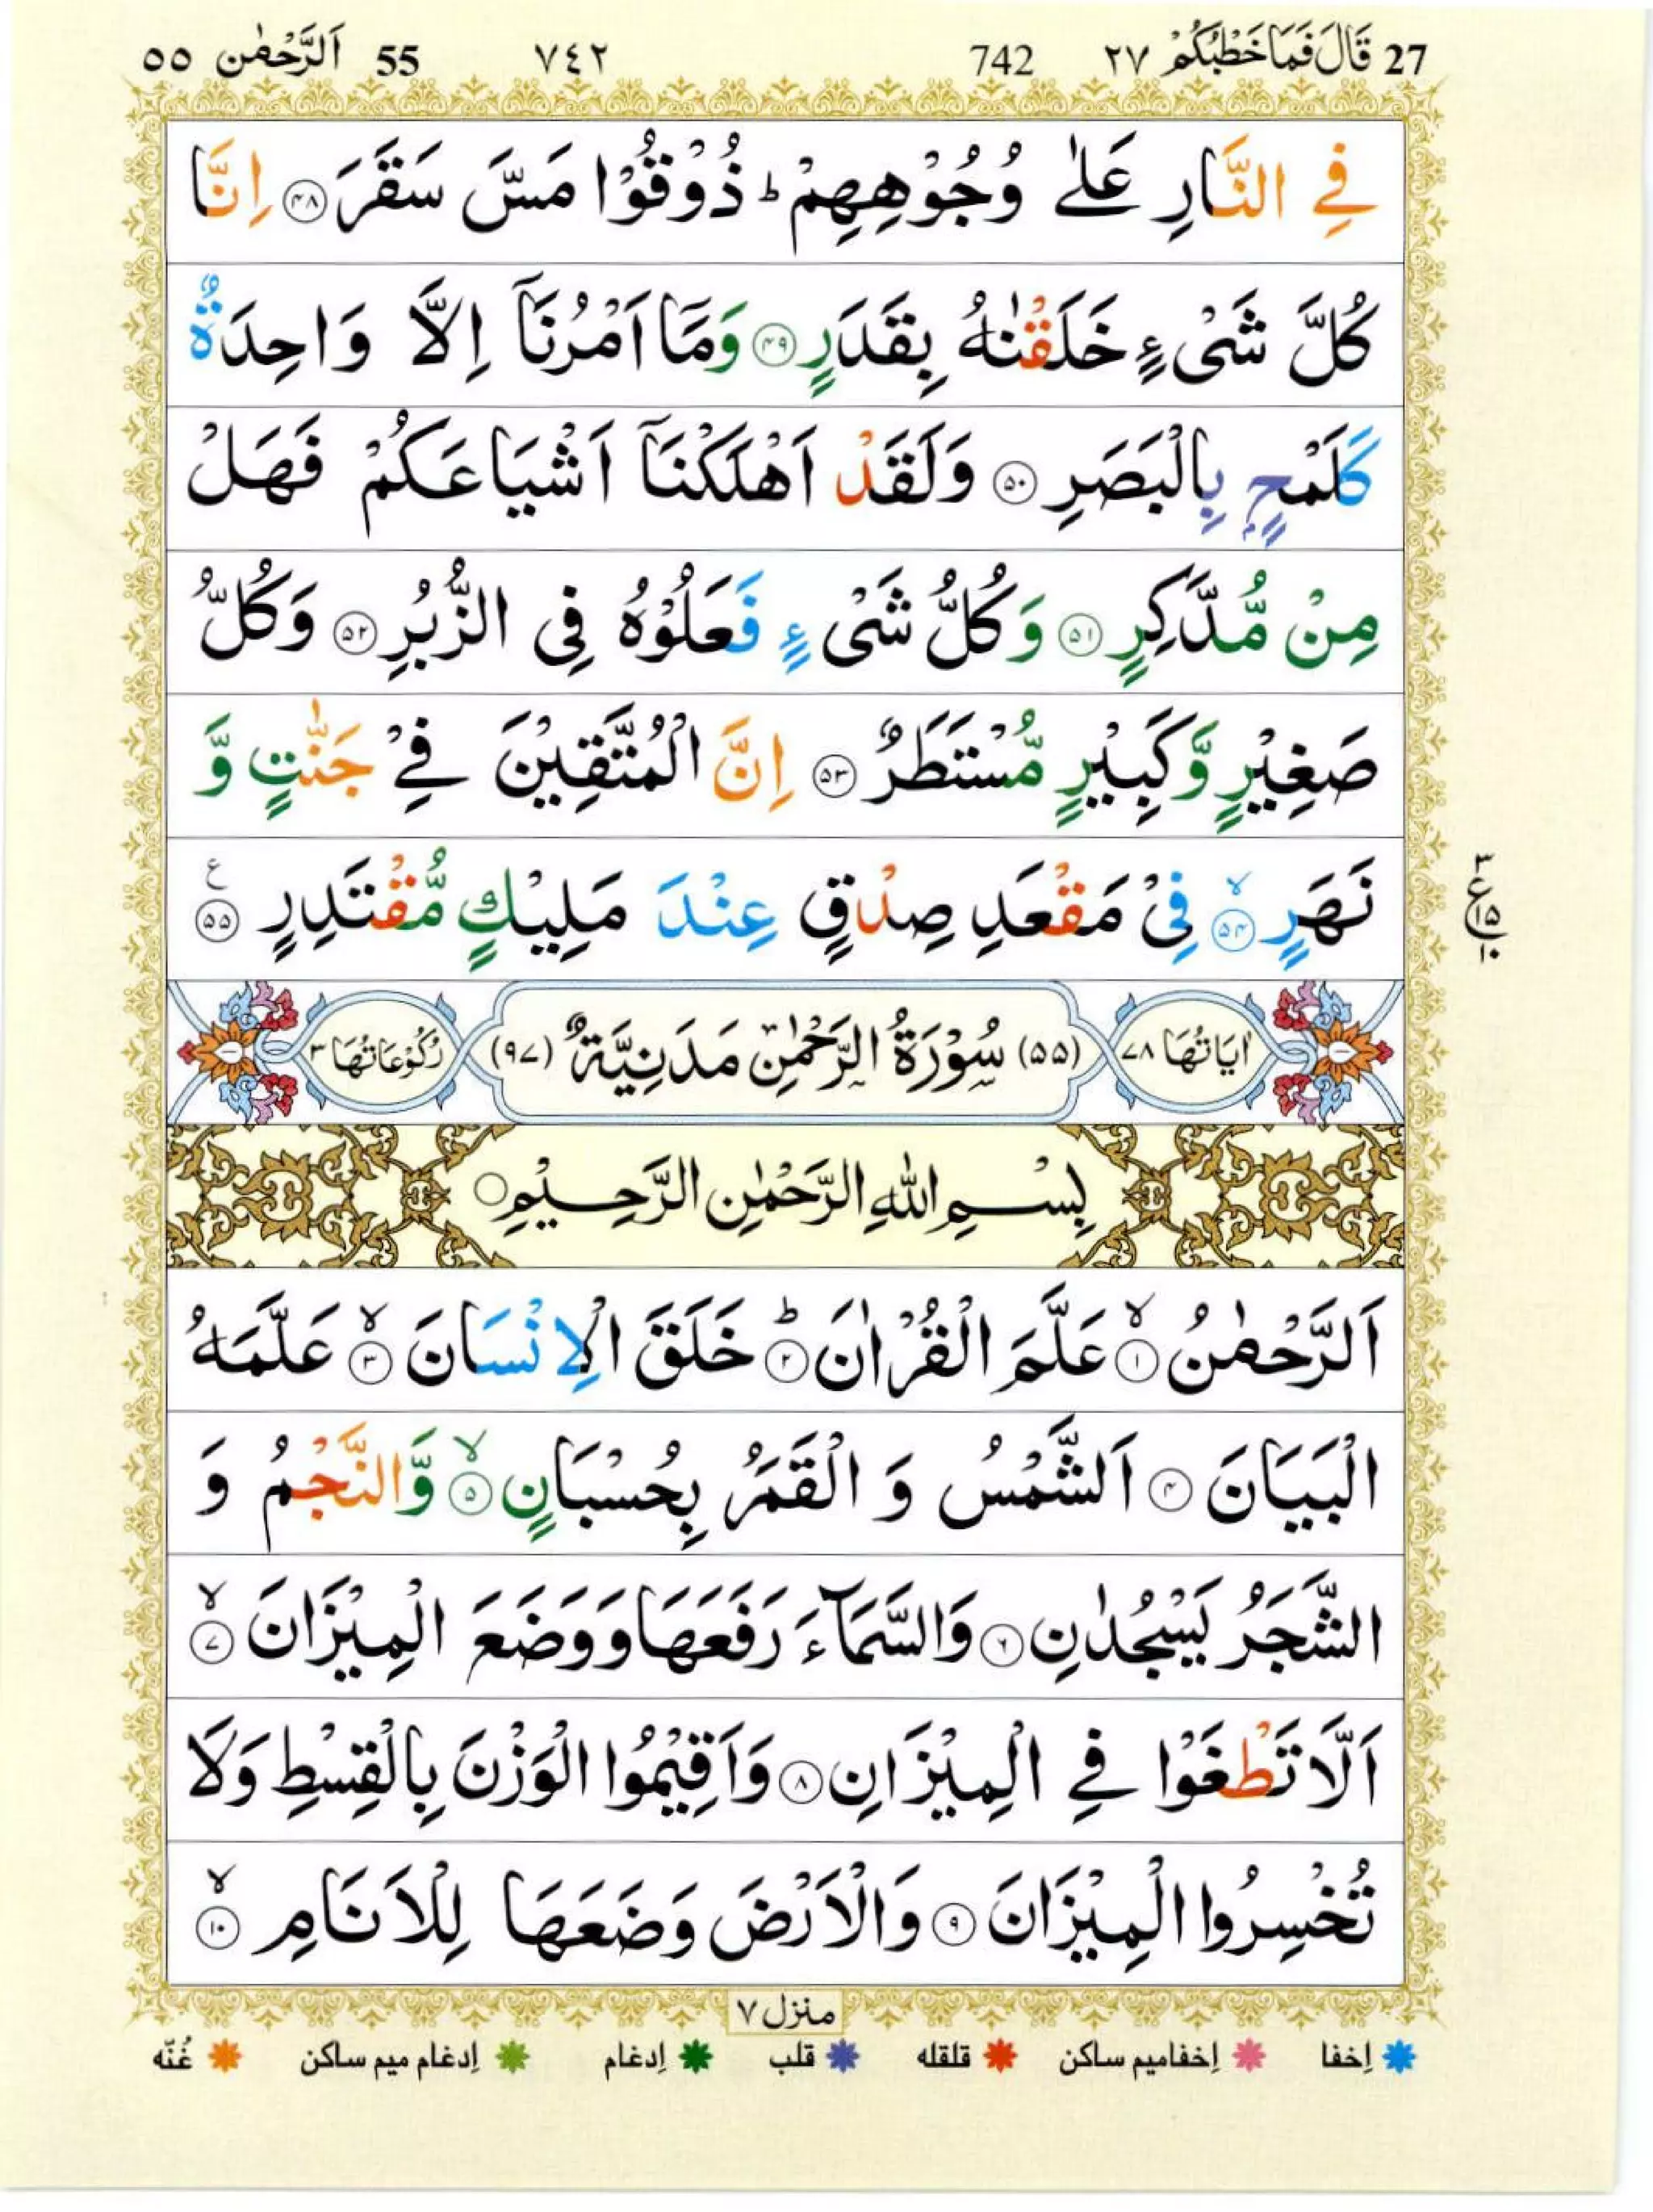 27 قَالَ فَمَا خَطْبُكُمْ ٢٧ 742 ٧٤٢ 55 اَلرَّحْمٰن ٥٥
فِي النَّارِ عَلٰى وُجُوْهِهِمْ ؕ ذُوْقُوْا مَسَّ سَقَرَ ﴿۴۸﴾ اِنَّا
كُلَّ شَىْءٍ خَلَقْنٰهُ بِقَدَرٍ ﴿۴۹﴾ وَمَاۤ اَمْرُنَاۤ اِلَّا وَاحِدَةٌ
كَلَمْحٍۭ بِالْبَصَرِ ﴿۵۰﴾ وَلَقَدْ اَهْلَكْنَاۤ اَشْيَاعَكُمْ فَهَلْ
مِنْ مُّدَّكِرٍ ﴿۵۱﴾ وَكُلُّ شَىْءٍ فَعَلُوْهُ فِى الزُّبُرِ ﴿۵۲﴾ وَكُلُّ
صَغِيْرٍ وَّكَبِيْرٍ مُّسْتَطَرٌ ﴿۵۳﴾ اِنَّ الْمُتَّقِيْنَ فِيْ جَنّٰتٍ وَّ
نَهَرٍ ۙ﴿۵۴﴾ فِيْ مَقْعَدِ صِدْقٍ عِنْدَ مَلِيْكٍ مُّقْتَدِرٍ ﴿۵۵﴾ ع
٣ ع ١٥ ١٠
اٰيَاتُهَا ٧٨ (٥٥) سُوْرَةُ الرَّحْمٰنِ مَدَنِيَّةٌ (٩٧) رُكُوْعَاتُهَا ٣
بِسْمِ اللهِ الرَّحْمٰنِ الرَّحِيْمِ
اَلرَّحْمٰنُ ۙ﴿۱﴾ عَلَّمَ الْقُرْاٰنَ ؕ﴿۲﴾ خَلَقَ الْاِنْسَانَ ۙ﴿۳﴾ عَلَّمَهُ
الْبَيَانَ ﴿۴﴾ اَلشَّمْسُ وَ الْقَمَرُ بِحُسْبَانٍ ۙ﴿۵﴾ وَّالنَّجْمُ وَ
الشَّجَرُ يَسْجُدٰنِ ﴿۶﴾ وَالسَّمَآءَ رَفَعَهَا وَوَضَعَ الْمِيْزَانَ ۙ﴿۷﴾
اَلَّا تَطْغَوْا فِي الْمِيْزَانِ ﴿۸﴾ وَاَقِيْمُوا الْوَزْنَ بِالْقِسْطِ وَلَا
تُخْسِرُوا الْمِيْزَانَ ﴿۹﴾ وَالْاَرْضَ وَضَعَهَا لِلْاَنَامِ ۙ﴿۱۰﴾
منزل ٧
إخفا إخفاميم ساكن قلقله قلب إدغام إدغام ميم ساكن غُنّه